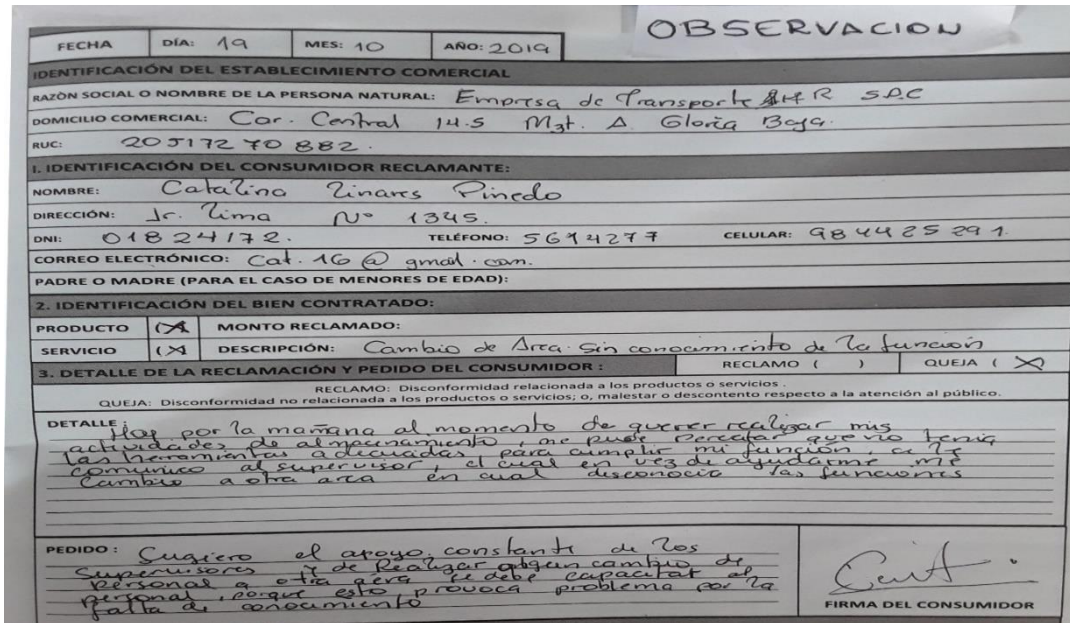 OBSERVACION
FECHA DÍA: 19 MES: 10 AÑO: 2019
IDENTIFICACIÓN DEL ESTABLECIMIENTO COMERCIAL
RAZÒN SOCIAL O NOMBRE DE LA PERSONA NATURAL: Empresa de Transporte SAC
DOMICILIO COMERCIAL: Car. Central 14.5 Mzt. A Gloria Baja.
RUC: 20517270882.
I. IDENTIFICACIÓN DEL CONSUMIDOR RECLAMANTE:
NOMBRE: Catalina Linares Pinedo
DIRECCIÓN: Jr. Lima Nº 1345.
DNI: 01824172. TELÉFONO: 5614277 CELULAR: 984425291.
CORREO ELECTRÓNICO: Cat.16@gmail.com.
PADRE O MADRE (PARA EL CASO DE MENORES DE EDAD):
2. IDENTIFICACIÓN DEL BIEN CONTRATADO:
PRODUCTO (X) MONTO RECLAMADO:
SERVICIO (X) DESCRIPCIÓN: Cambio de Area sin conocimiento de la función
3. DETALLE DE LA RECLAMACIÓN Y PEDIDO DEL CONSUMIDOR : RECLAMO ( ) QUEJA (X)
RECLAMO: Disconformidad relacionada a los productos o servicios .
QUEJA: Disconformidad no relacionada a los productos o servicios; o, malestar o descontento respecto a la atención al público.
DETALLE : Hoy por la mañana al momento de querer realizar mis
actividades de almacenamiento, me pude percatar que no tenia
las herramientas adecuadas para cumplir mi función, se le
comunico al supervisor, el cual en vez de ayudarme me
cambio a otra area en cual desconocia las funciones
PEDIDO : Sugiero el apoyo constante de los
supervisores y de Realizar algun cambio de
personal a otra aera se debe capacitar al
personal, porque esto provoca problema por la
falta de conocimiento
FIRMA DEL CONSUMIDOR